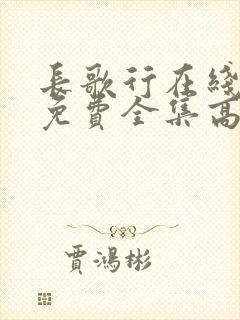 長歌行在綫
免費全集高
賈鴻彬